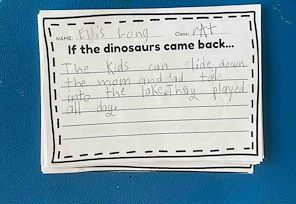 NAME: Ellis Long Class: PAT
If the dinosaurs came back...
The Kids can slide down
the mom and dad tail
into the lake. They played
all day.